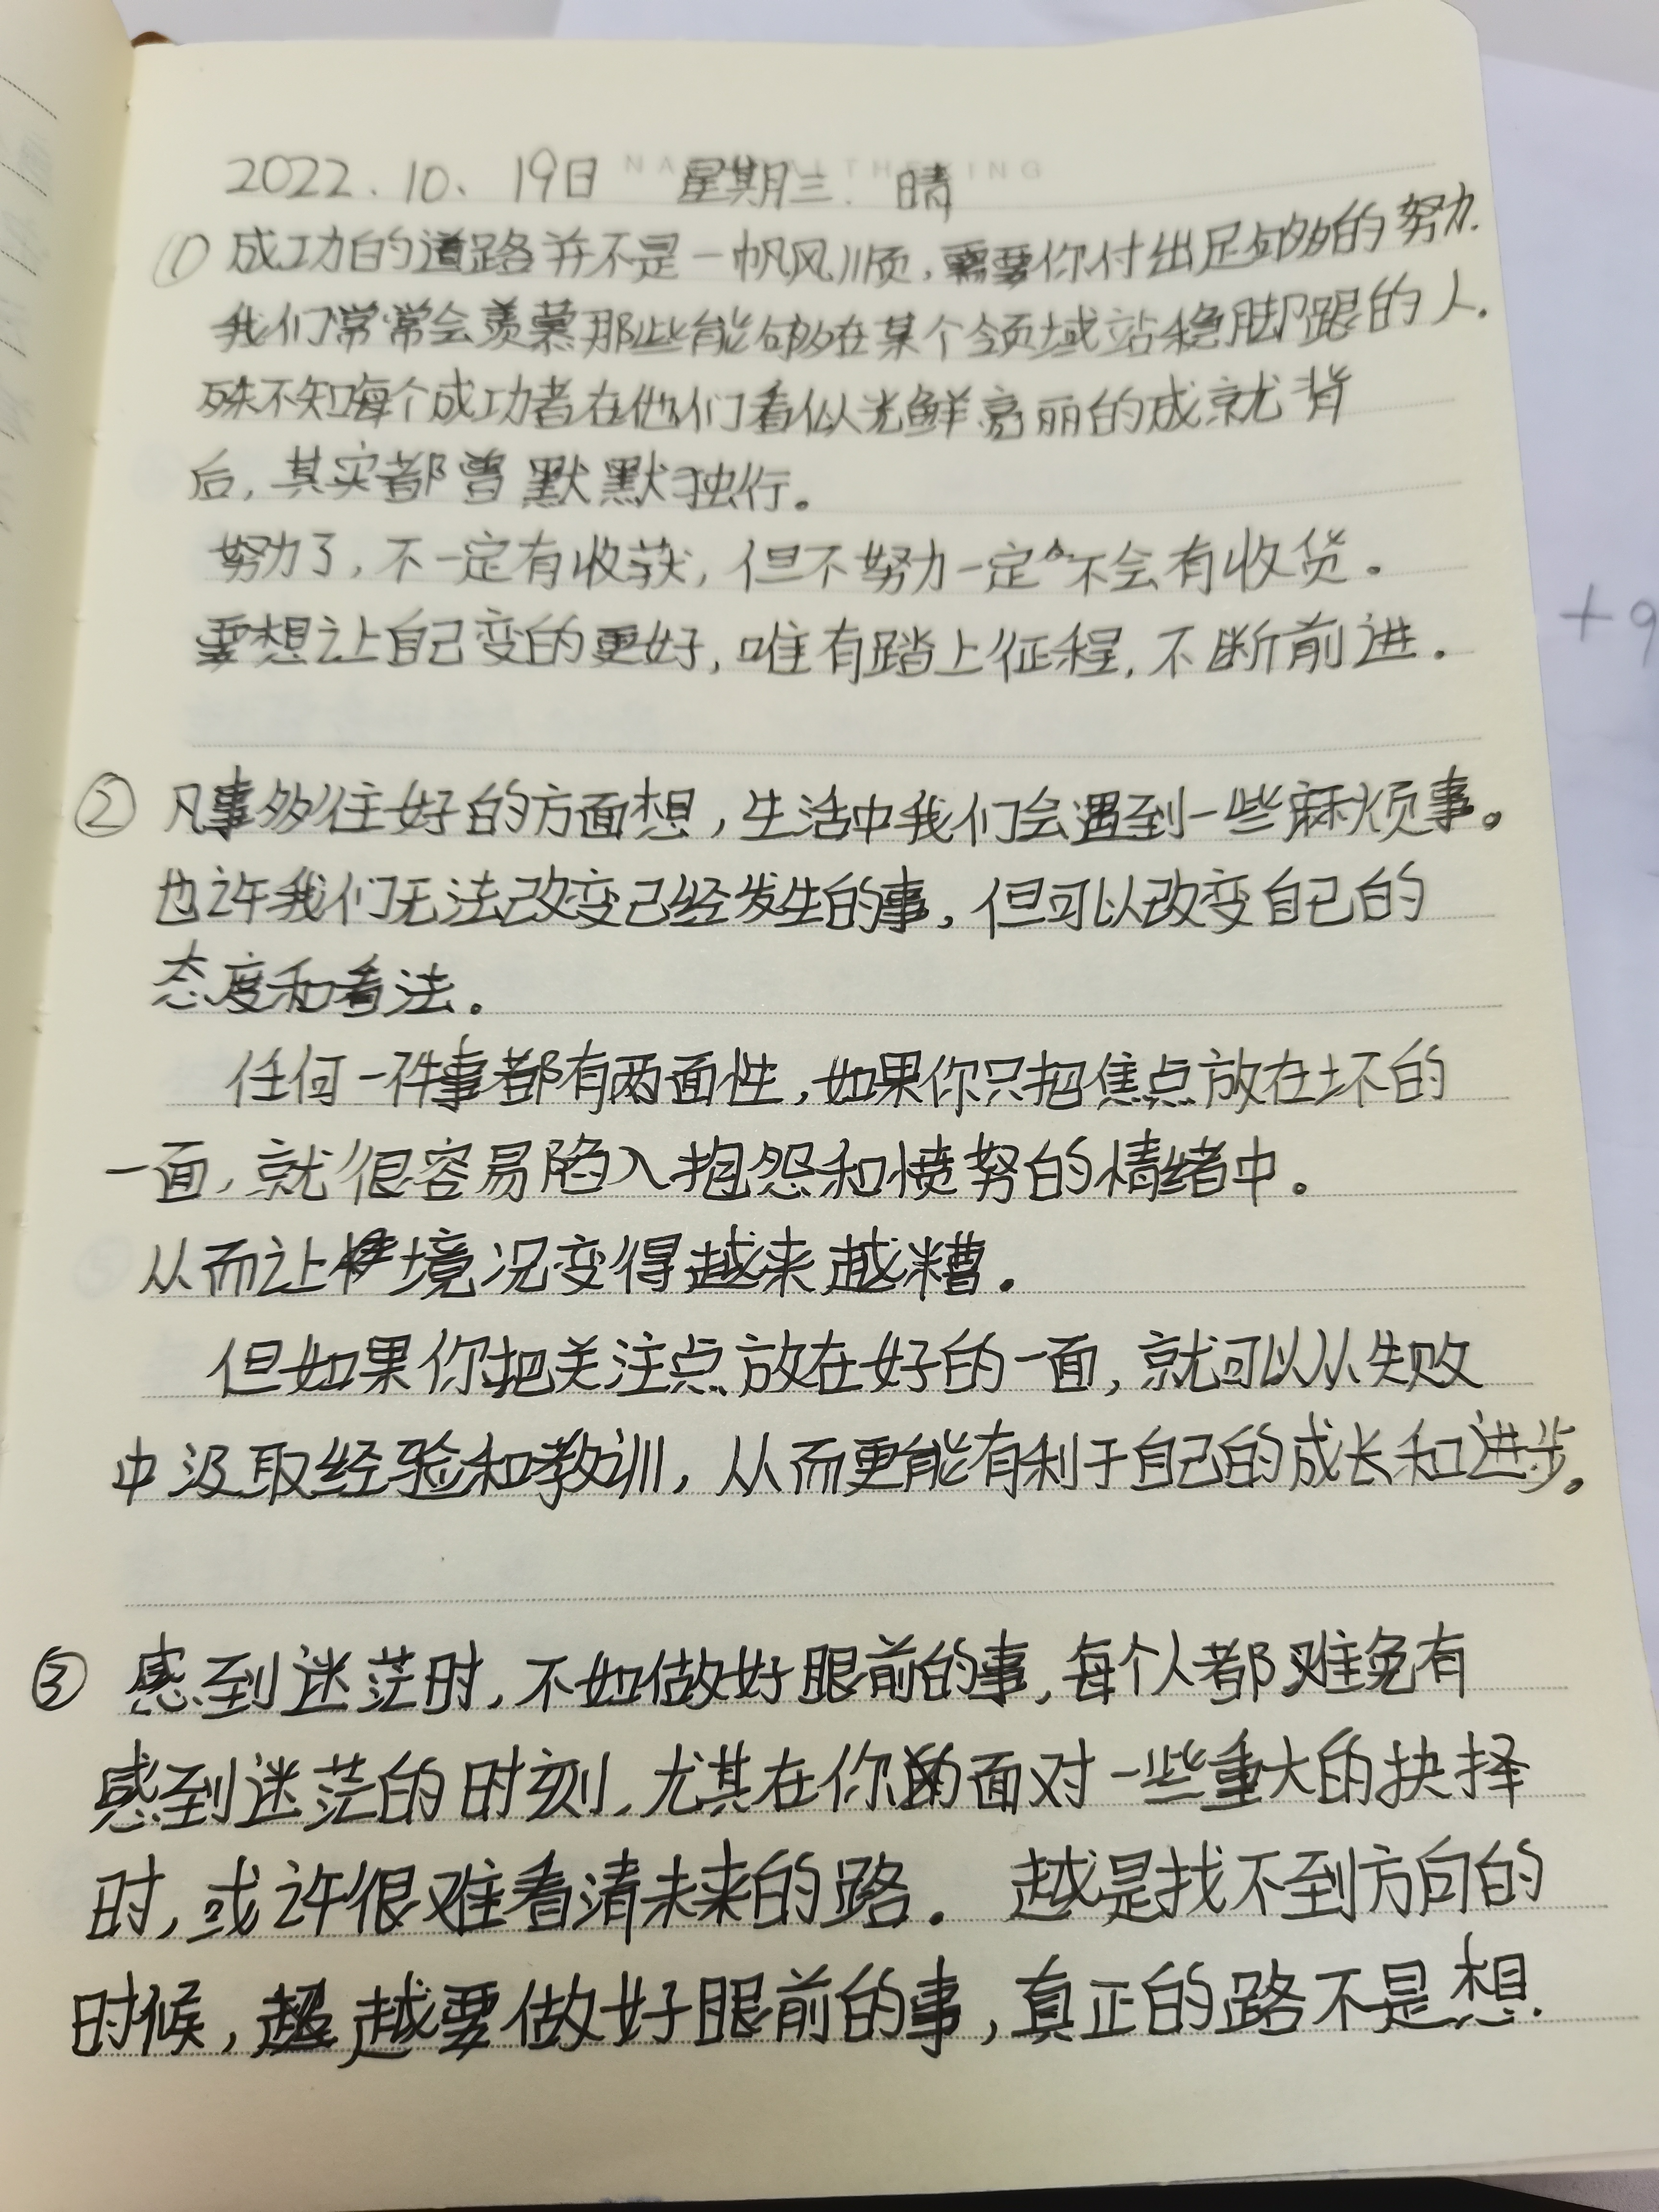 2022.10、19日 星期三. 晴
① 成功的道路并不是一帆风顺,需要你付出足够的努力.
我们常常会羡慕那些能够在某个领域站稳脚跟的人.
殊不知每个成功者在他们看似光鲜亮丽的成就背
后,其实都曾默默独行。
努力了,不一定有收获,但不努力一定不会有收货.
要想让自己变的更好,唯有踏上征程,不断前进.
② 凡事多往好的方面想,生活中我们会遇到一些麻烦事。
也许我们无法改变己经发生的事,但可以改变自己的
态度和看法。
任何一件事都有两面性,如果你只把焦点放在坏的
一面,就很容易陷入抱怨和愤努的情绪中。
从而让境况变得越来越糟.
但如果你把关注点放在好的一面,就可以从失败
中汲取经验和教训,从而更能有利于自己的成长和进步。
③ 感到迷茫时,不如做好眼前的事,每个人都难免有
感到迷茫的时刻,尤其在你面对一些重大的抉择
时,或许很难看清未来的路. 越是找不到方向的
时候,越要做好眼前的事,真正的路不是想.
+9